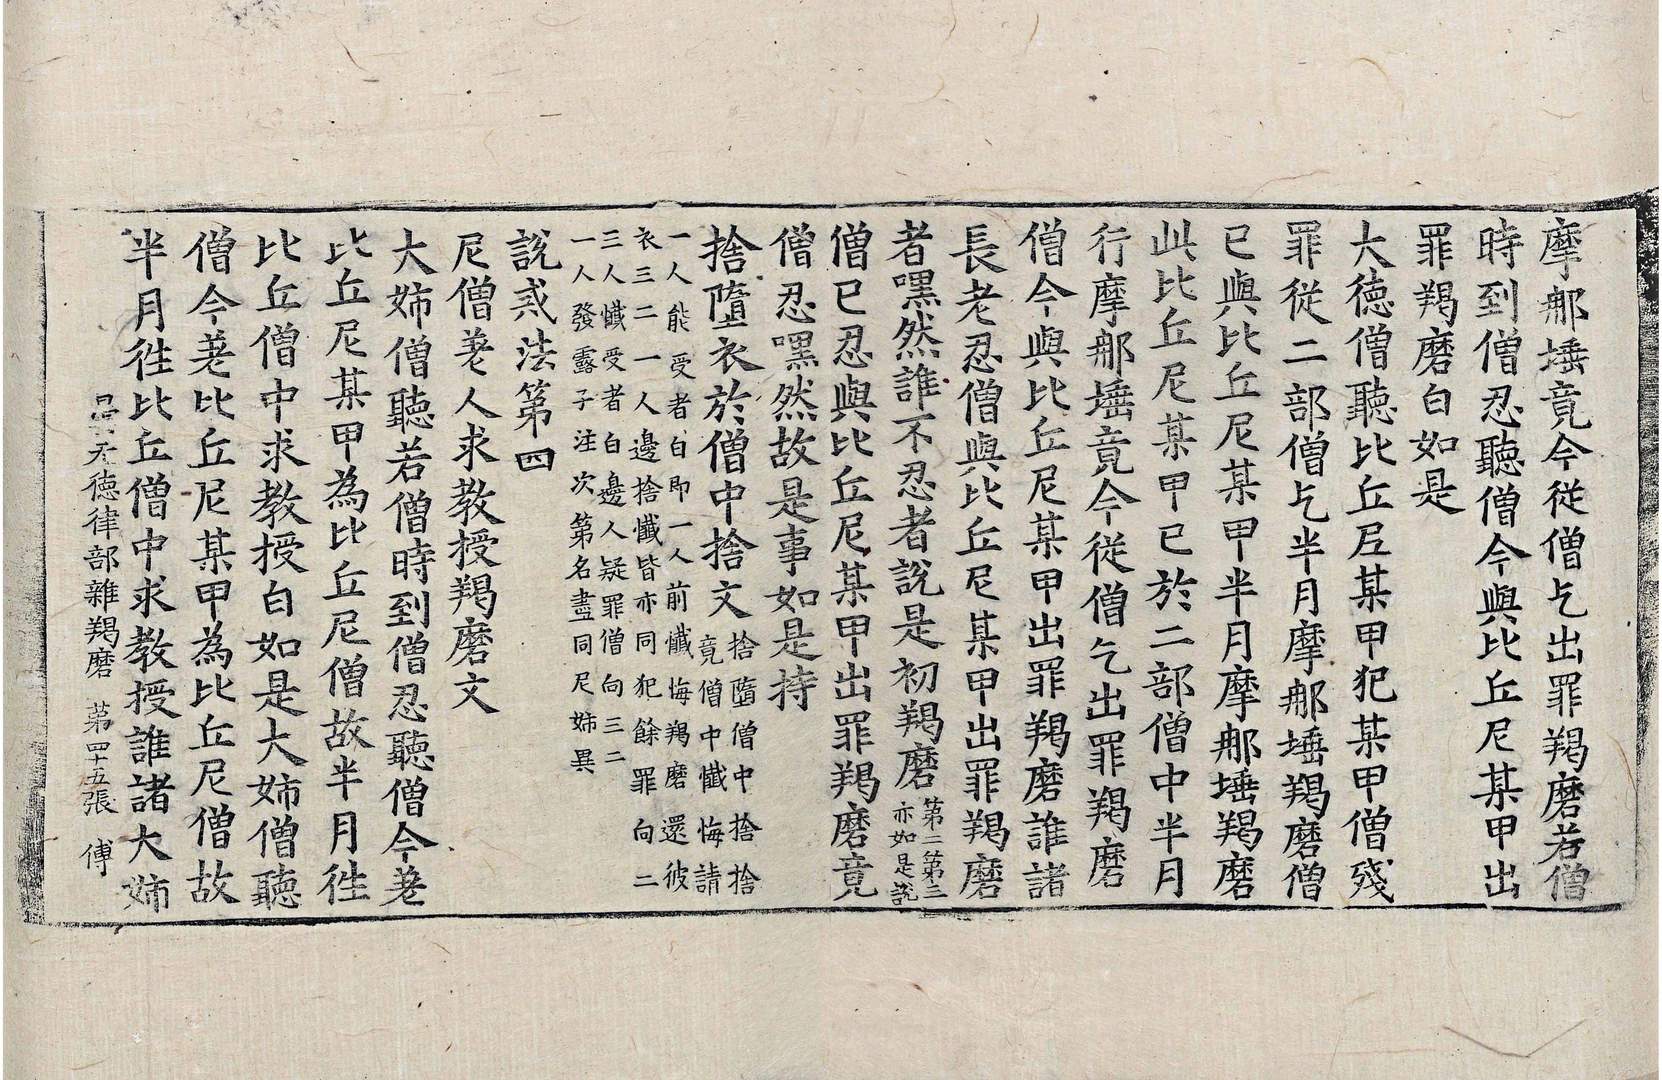 摩那埵竟今從僧乞出罪羯磨若僧
時到僧忍聽僧今與比丘尼某甲出
罪羯磨白如是
大德僧聽比丘尼某甲犯某甲僧殘
罪從二部僧乞半月摩那埵羯磨僧
已與比丘尼某甲半月摩那埵羯磨
此比丘尼某甲已於二部僧中半月
行摩那埵竟今從僧乞出罪羯磨
僧今與比丘尼某甲出罪羯磨誰諸
長老忍僧與比丘尼某甲出罪羯磨
者嘿然誰不忍者說是初羯磨第二第三
亦如是說
僧已忍與比丘尼某甲出罪羯磨竟
僧忍嘿然故是事如是持
捨墮衣於僧中捨文捨墮僧中捨捨
竟僧中懺悔請
一人能受者白即一人前懺悔羯磨還彼
衣三二一人邊捨懺皆亦同犯餘罪向二
三人懺受者白邊人疑罪僧向三二
一人發露子注次第名盡同尼姊異
說戒法第四
尼僧差人求教授羯磨文
大姊僧聽若僧時到僧忍聽僧今差
比丘尼某甲為比丘尼僧故半月往
比丘僧中求教授白如是大姊僧聽
僧今差比丘尼某甲為比丘尼僧故
半月往比丘僧中求教授誰諸大姊
曇无德律部雜羯磨 第四十五張 傅